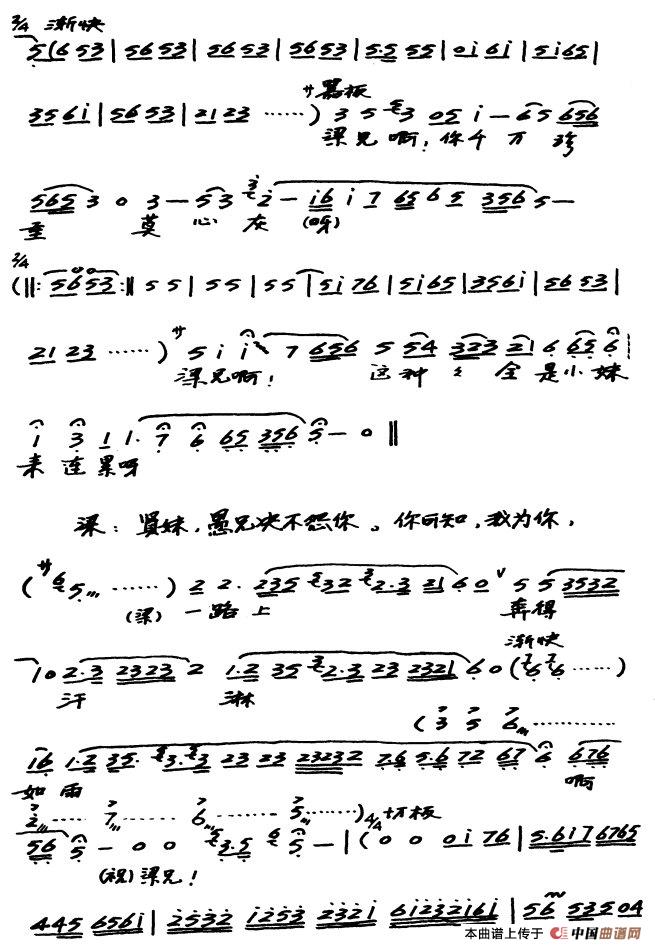 2/4 渐快
5(6 53|56 53|56 53|56 53|5·5 55|0i 6i|5i65|
嚣板
35 6i|56 53|21 23 ……) 3 5 3 05 i — 65 656
梁兄啊!你千万珍
565 3 0 3 — 53 2 — i6 i 7 65 6 5 356 5 —
重 莫心灰(呀)
2/4
(‖:5653:‖55|55|55|5i 76|5i65|356i|56 53|
21 23 ……) 5 i i 7 656 5 54 323 21 6 65 6
梁兄啊! 这种种全是小妹
1 3 1 1· 7 6 65 356 5 — 0‖
来连累呀
梁:贤妹,愚兄决不怨你。你可知,我为你,
(65 ……) 2 2· 235 32 2·3 21 6 0 5 5 3532
(梁)一路上 奔得
渐快
10 2·3 2323 2 1·2 35 2·3 23 2321 6 0 (6 6 ……)
汗 淋
(3 5 6 ……
16 1·2 35· 3·3 23 23 23232 76 5·6 72 67 6 676
如雨 啊
2 …… 7 …… 6 …… 5 ……) 4/4 切板
56 5 — 0 0 3·5 5 — |(0 0 0i 76|5·6i7 6765
(祝)梁兄!
445 656i|2532 1253 2321 6i232i6i|56 535 04
本曲谱上传于 中国曲谱网